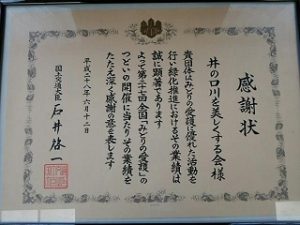 感謝状
井の口川を美しくする会様
貴団体はみどりの愛護に優れた活動を
行い緑化推進におけるその業績は
誠に顕著であります
よって第二十七回全国「みどりの愛護」の
つどいの開催に当たりその業績を
たたえ深く感謝の意を表します
平成二十八年六月十一日
国土交通大臣 石井啓一